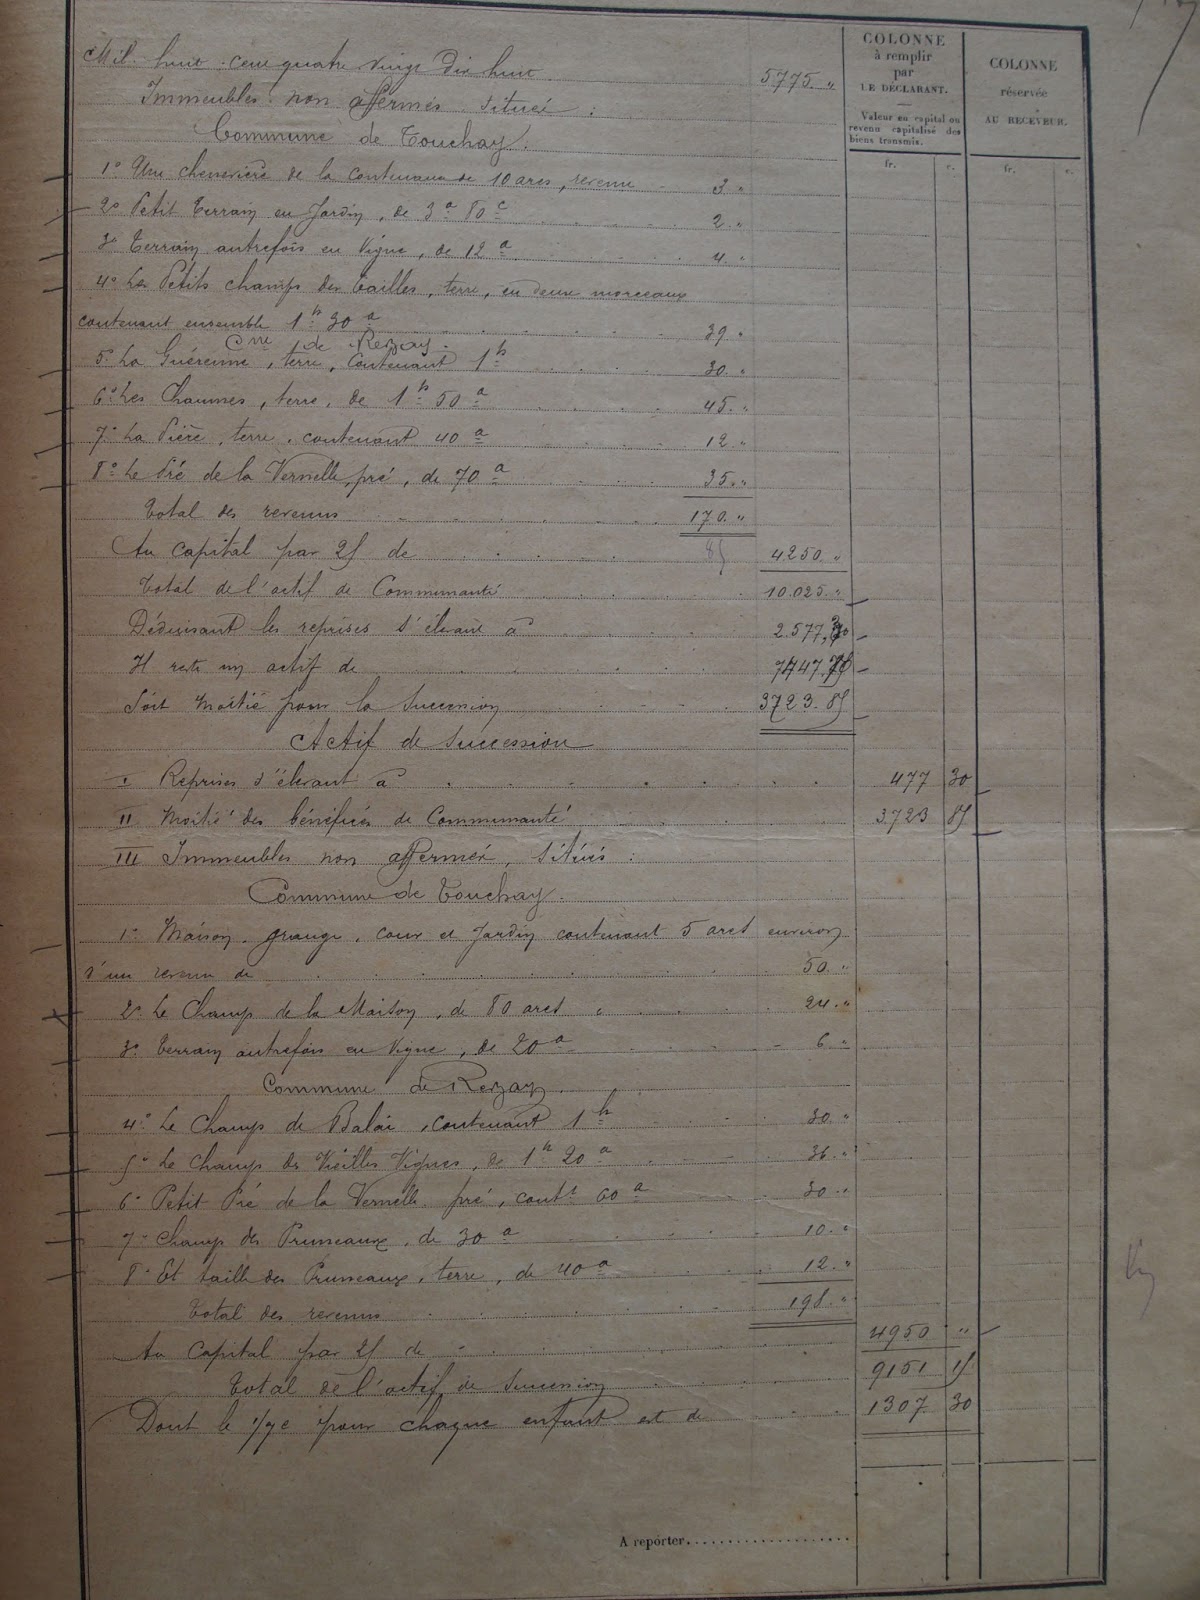 COLONNE
à remplir
par
LE DÉCLARANT.
Valeur en capital ou
revenu capitalisé des
biens transmis.
fr. c.
COLONNE
réservée
AU RECEVEUR.
fr. c.
Mil huit cent quatre vingt dix huit 5775 "
Immeubles non affermés situés :
Commune de Touchay.
1° Une chenevière de la contenance de 10 ares, revenu 3 "
2° Petit Terrain en Jardin, de 3a 80c 2 "
3° Terrain autrefois en vigne, de 12a 4 "
4° Les Petits champs des Tailles, terre, en deux morceaux
contenant ensemble 1h 30a 39 "
Cne de Rezay.
5° La Guérenne, terre, contenant 1h 30 "
6° Les Chaumes, terre, de 1h 50a 45 "
7° La , terre, contenant 40a 12 "
8° Le Pré de la Vernelle, pré, de 70a 35 "
Total des revenus 170 "
Au capital par 25 de 85 4250 "
Total de l'actif de Communauté 10.025 "
Déduisant les reprises s'élevant à 2.577,30
Il reste un actif de 7447.
Soit moitié pour la succession 3723.85
Actif de succession
I Reprises s'élevant à 477 30
II Moitié des bénéfices de Communauté 3.723 85
III Immeubles non affermés, situés :
Commune de Touchay.
1° Maison, grange, cour et Jardin contenant 5 ares environ
d'un revenu de 50 "
2° Le Champ de la Maison, de 80 ares 24 "
3° Terrain autrefois en vigne, de 20a 6 "
Commune de Rezay.
4° Le Champ de Balai, contenant 1h 30 "
5° Le Champ des Vieilles Vignes, de 1h 20a 36 "
6° Petit Pré de la Vernelle, pré, contt 60a 30 "
7° Champ des Pruneaux, de 30a 10 "
8° Et taille des Pruneaux, terre, de 40a 12 "
Total des revenus 198 "
Au Capital par 25 de 4950 "
Total de l'actif de succession 9151 15
Dont le 1/7e pour chaque enfant est de 1307 30
A reporter